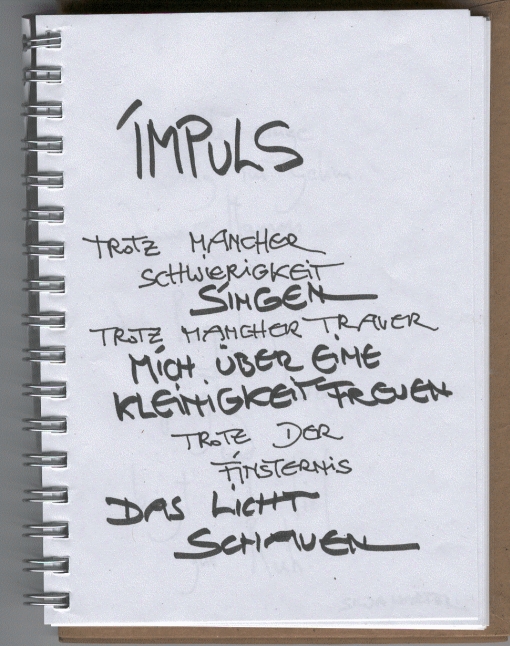 IMPULS
TROTZ MANCHER
SCHWIERIGKEIT
SINGEN
TROTZ MANCHER TRAUER
MICH ÜBER EINE
KLEINIGKEIT FREUEN
TROTZ DER
FINSTERNIS
DAS LICHT
SCHAUEN